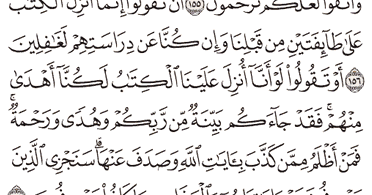 وَٱتَّقُوا۟ لَعَلَّكُمْ تُرْحَمُونَ ١٥٥ أَن تَقُولُوٓا۟ إِنَّمَآ أُنزِلَ ٱلْكِتَٰبُ
عَلَىٰ طَآئِفَتَيْنِ مِن قَبْلِنَا وَإِن كُنَّا عَن دِرَاسَتِهِمْ لَغَٰفِلِينَ
١٥٦ أَوْ تَقُولُوا۟ لَوْ أَنَّآ أُنزِلَ عَلَيْنَا ٱلْكِتَٰبُ لَكُنَّآ أَهْدَىٰ
مِنْهُمْ ۚ فَقَدْ جَآءَكُم بَيِّنَةٌ مِّن رَّبِّكُمْ وَهُدًى وَرَحْمَةٌ ۚ
فَمَنْ أَظْلَمُ مِمَّن كَذَّبَ بِـَٔايَٰتِ ٱللَّهِ وَصَدَفَ عَنْهَا ۗ سَنَجْزِى ٱلَّذِينَ